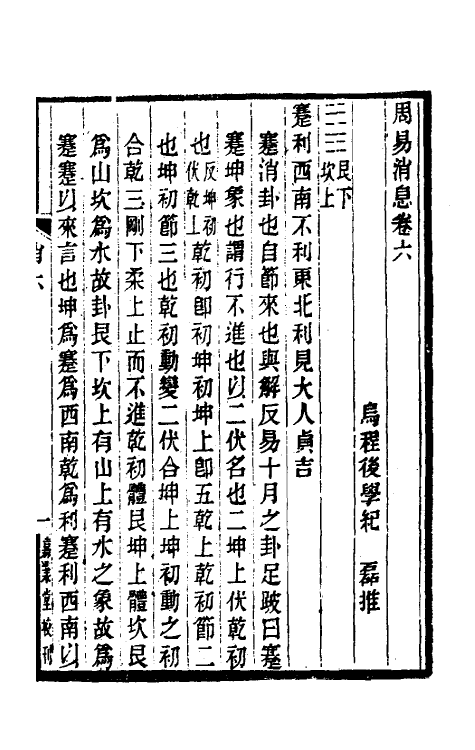 周易消息卷六
烏程後學紀　磊推
艮下
坎上
蹇利西南不利東北利見大人貞吉
蹇消卦也自節來也與解反易十月之卦足跛曰蹇
蹇坤象也謂行不進也以二伏名也二坤上伏乾初
也反坤初伏乾上乾初卽坤初坤上卽五乾上乾初節二
也坤初節三也乾初動變二伏合坤上坤初動之初
合乾三剛下柔上止而不進乾初體艮坤上體坎艮
爲山坎爲水故卦艮下坎上有山上有水之象故爲
蹇蹇以來言也坤爲蹇爲西南乾爲利蹇利西南以
肖六
一
嘉業堂校刊